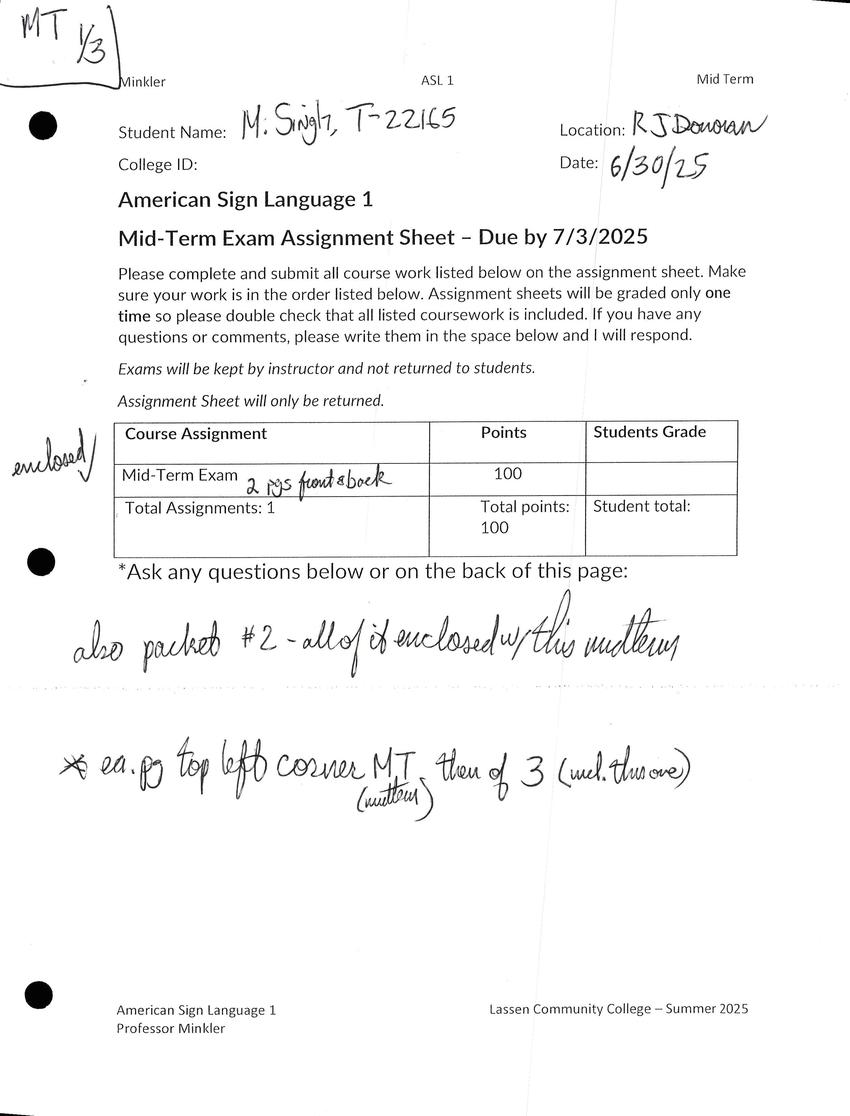 MT 1/3
Minkler ASL 1 Mid Term
Student Name: M. Singh, T-22165 Location: RJ Donovan
College ID: Date: 6/30/25
American Sign Language 1
Mid-Term Exam Assignment Sheet – Due by 7/3/2025
Please complete and submit all course work listed below on the assignment sheet. Make
sure your work is in the order listed below. Assignment sheets will be graded only one
time so please double check that all listed coursework is included. If you have any
questions or comments, please write them in the space below and I will respond.
Exams will be kept by instructor and not returned to students.
Assignment Sheet will only be returned.
enclosed
Course Assignment Points Students Grade
Mid-Term Exam 2 pgs front & back 100
Total Assignments: 1 Total points: Student total:
100
*Ask any questions below or on the back of this page:
also packet #2 - all of it enclosed w/ this midterm
* ea. pg top left corner MT, then of 3 (incl. this one)
(midterm)
American Sign Language 1 Lassen Community College – Summer 2025
Professor Minkler